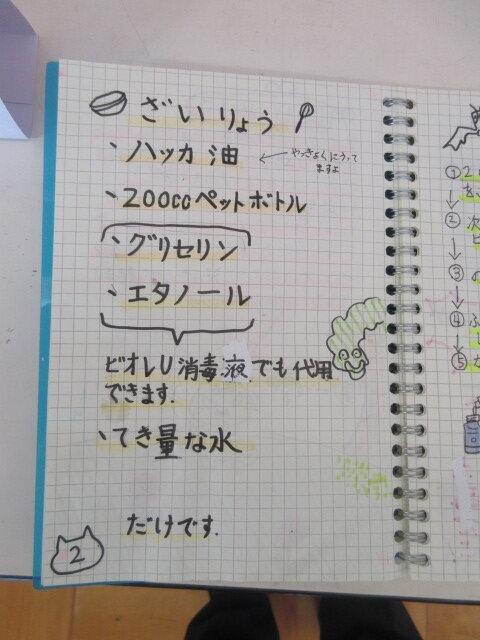 ざいりょう
・ハッカ油
←やっきょくにうって
ますよ
・200ccペットボトル
・グリセリン
・エタノール
ビオレU消毒液でも代用
できます.
・てき量な水
だけです.
2
①2
②次
③
④ふ
⑤